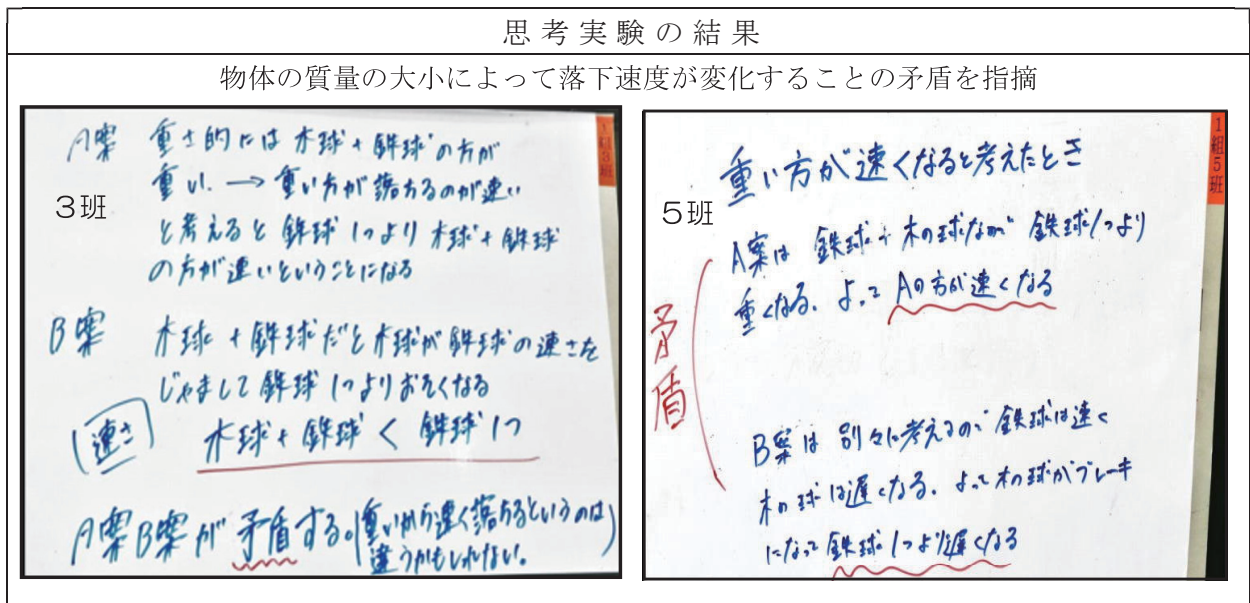 思考実験の結果
物体の質量の大小によって落下速度が変化することの矛盾を指摘
1組3班
3班
A案 重さ的には木球+鉄球の方が
重い. → 重い方が落ちるのが速い
と考えると鉄球1つより木球+鉄球
の方が速いということになる
B案 木球+鉄球だと木球が鉄球の速さを
じゃまして鉄球1つよりおそくなる
(速さ) 木球+鉄球<鉄球1つ
A案B案が矛盾する。(重いから速く落ちるというのは
違うかもしれない。)
1組5班
5班
重い方が速くなると考えたとき
A案は鉄球+木の球なので鉄球1つより
重くなる. よってAの方が速くなる
矛盾
B案は別々に考えるので鉄球は速く
木の球は遅くなる. よって木の球がブレーキ
になって鉄球1つより遅くなる